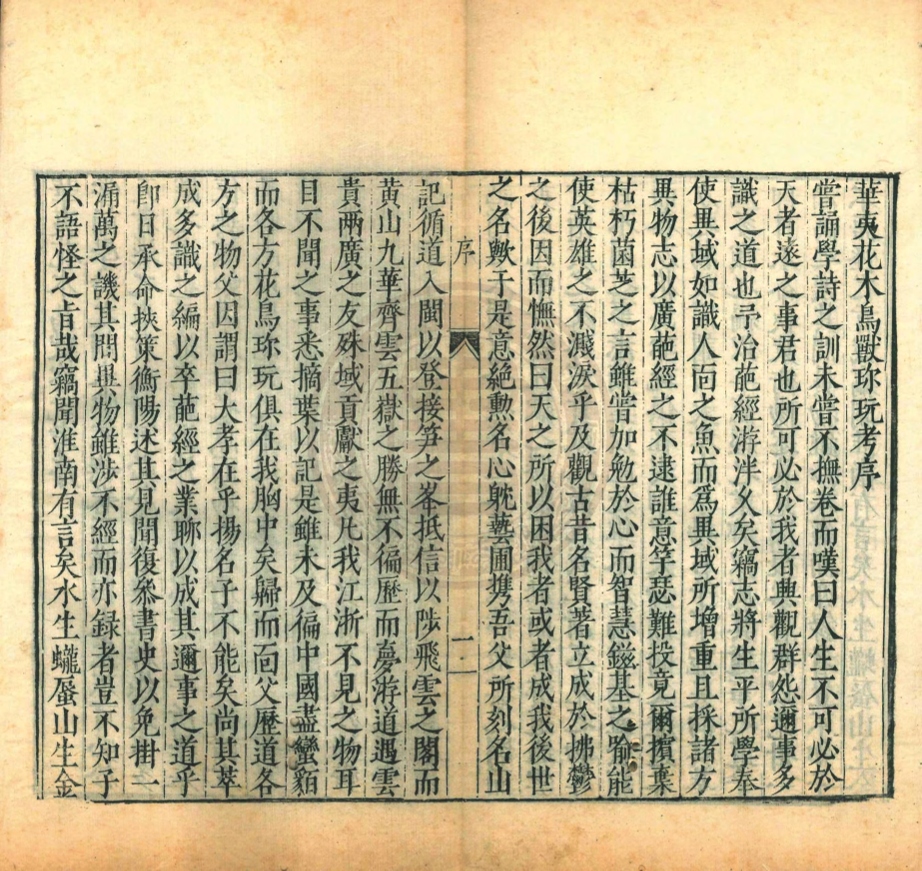 華夷花木鳥獸珎玩考序
嘗誦學詩之訓未嘗不撫卷而嘆曰人生不可必於
天者遠之事君也所可必於我者興觀群怨邇事多
識之道也予治葩經游泮久矣竊志將生平所學奉
使異域如識人面之魚而爲異域所增重且採諸方
異物志以廣葩經之不逮誰意竽瑟難投竟爾擯棄
枯朽菌芝之言雖嘗加勉於心而智慧鎡基之喻能
使英雄之不濺淚乎及觀古昔名賢著立成於拂鬱
之後因而憮然曰天之所以困我者或者成我後世
之名歟于是意絶勲名心躭藝圃携吾父所刻名山
序
一
記循道入閩以登接笋之峯抵信以陟飛雲之閣而
黄山九華齊雲五嶽之勝無不徧歷而夢游道遇雲
貴兩廣之友殊域貢獻之夷凡我江浙不見之物耳
目不聞之事悉摘葉以記是雖未及徧中國盡蠻貊
而各方花鳥珎玩俱在我胸中矣歸而面父歷道各
方之物父因謂曰大孝在乎揚名子不能矣尚其萃
成多識之編以卒葩經之業聊以成其邇事之道乎
卽日承命挾策衡陽述其見聞復叅書史以免掛一
漏萬之譏其間異物雖涉不經而亦録者豈不知子
不語怪之旨哉竊聞淮南有言矣水生蠬蜃山生金